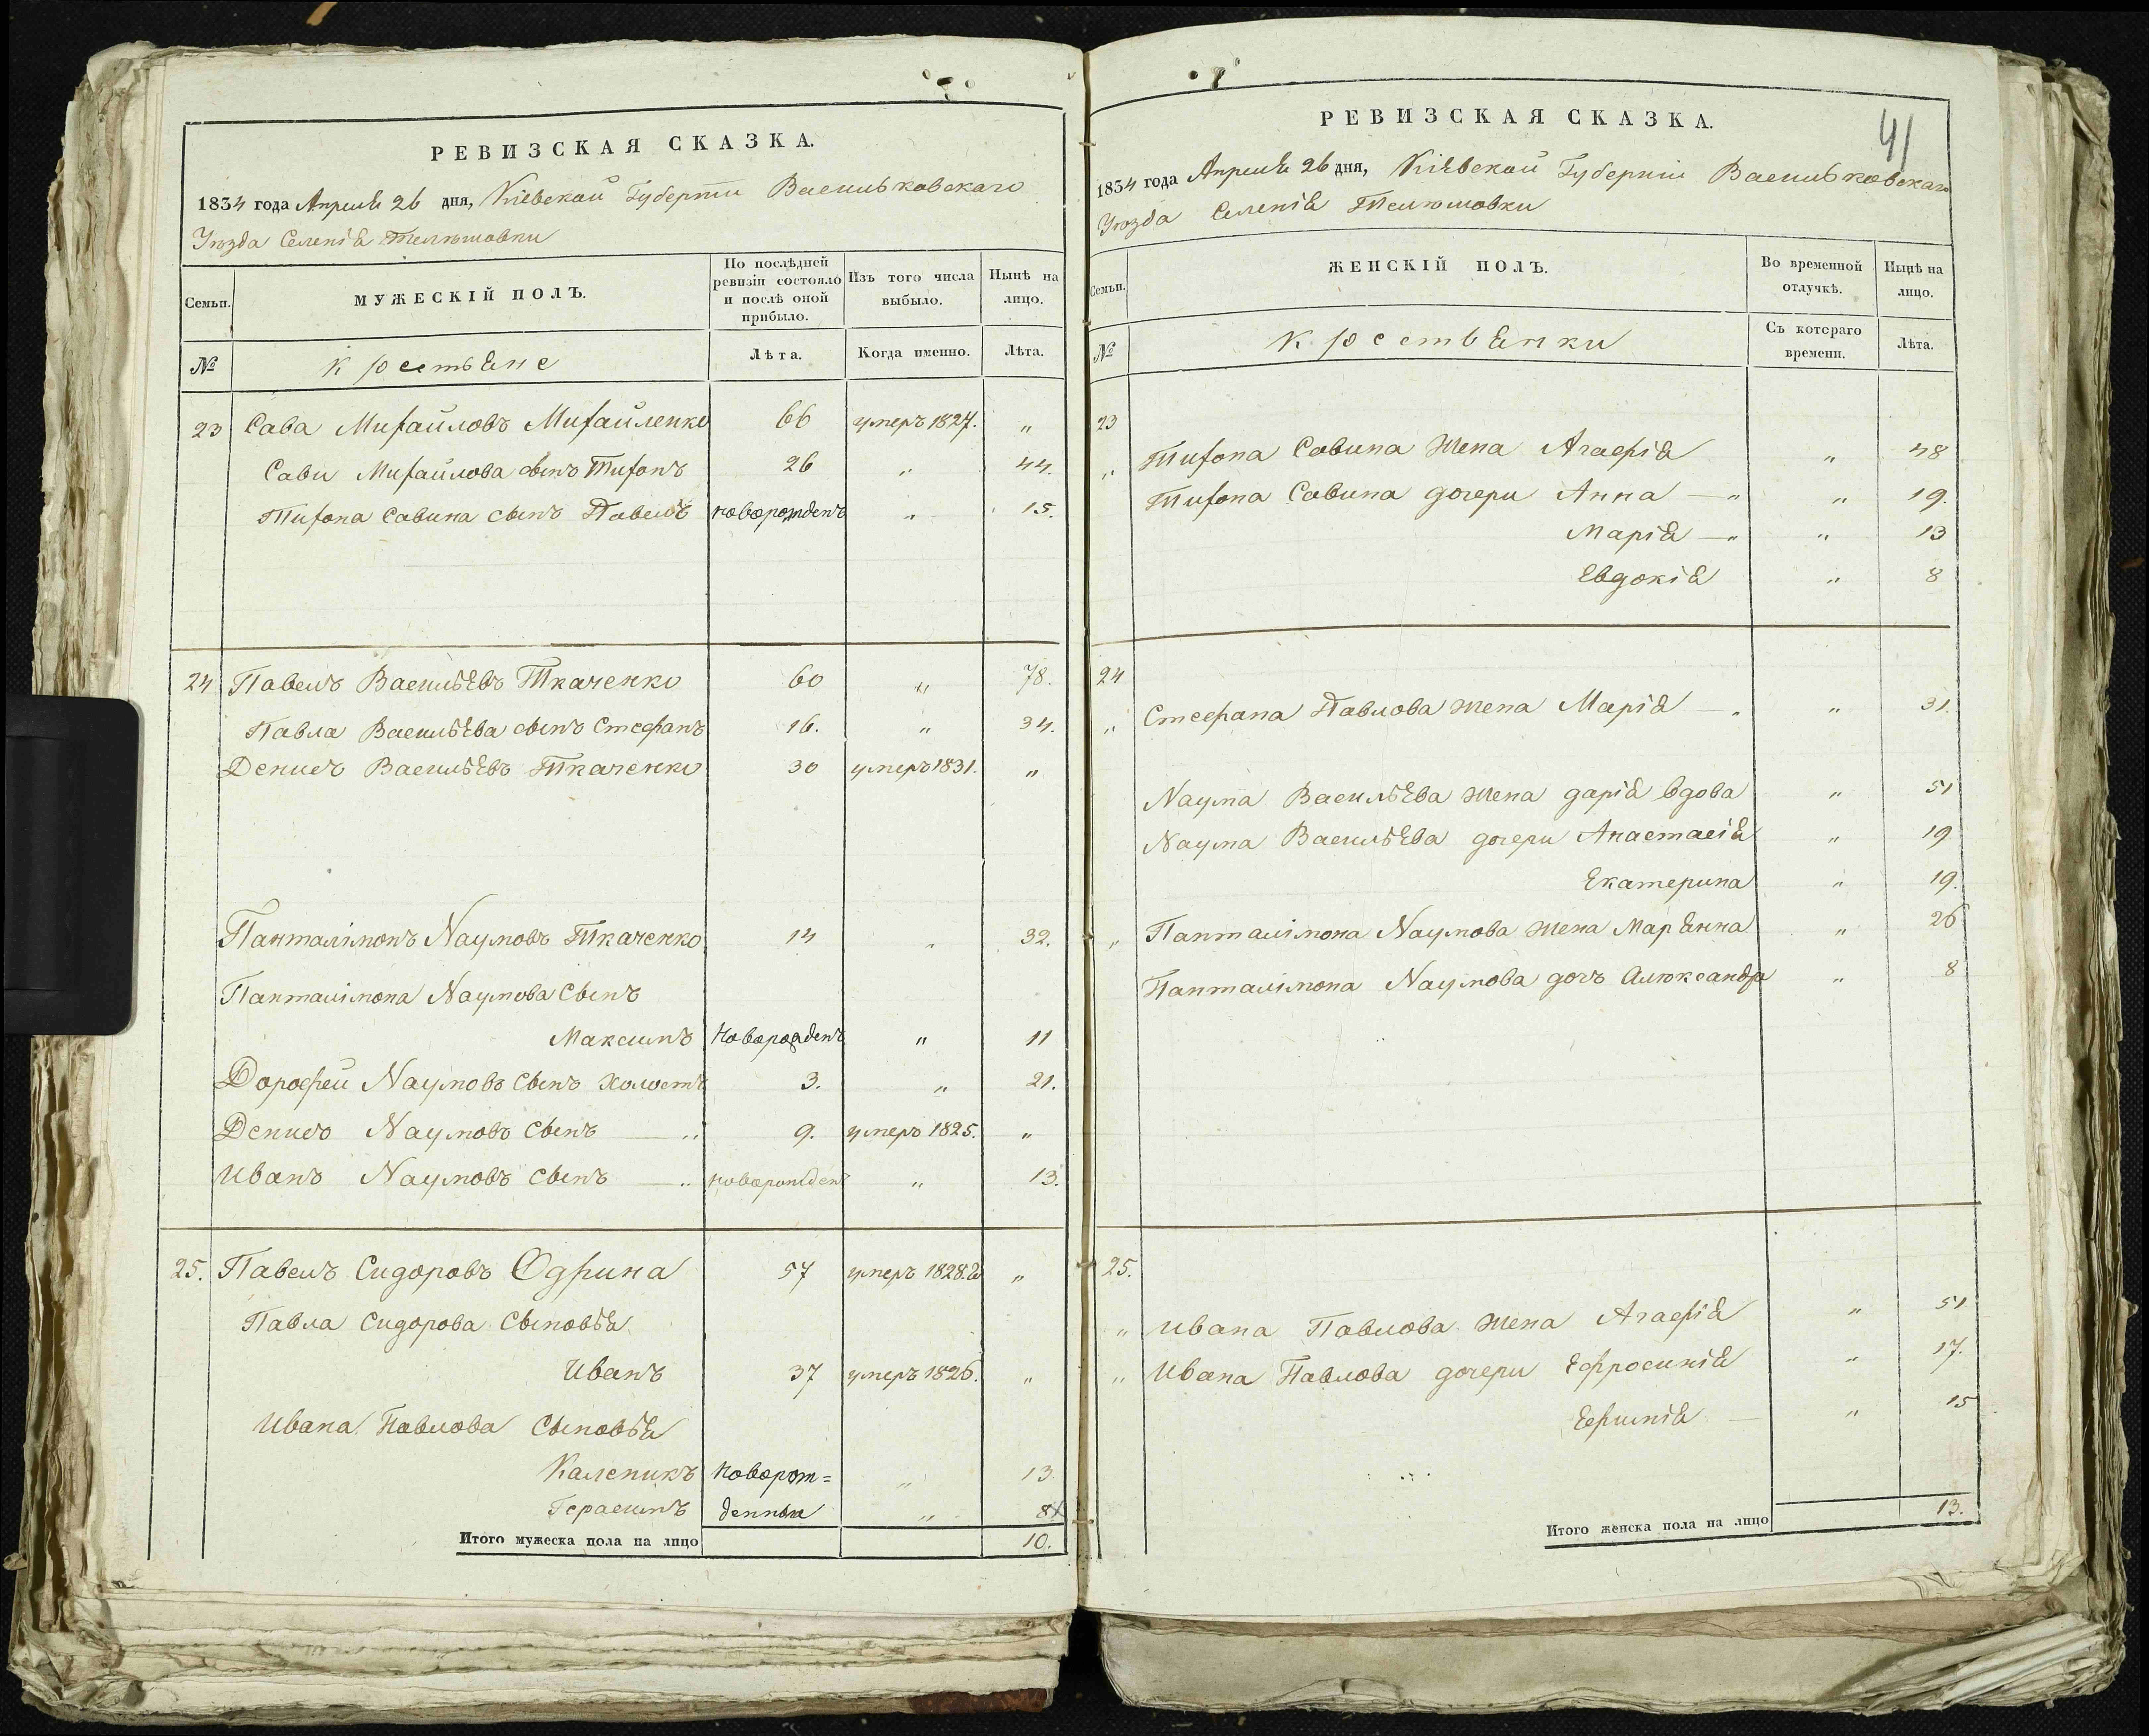 РЕВИЗСКАЯ СКАЗКА.
1834 года Апреля 26 дня, Кіевской Губерніи Васильковскаго
Уюзда Селенія Телюшовки
Семьи.
МУЖЕСКІЙ ПОЛЪ.
По послѣдней ревизіи состояло и послѣ оной прибыло.
Изъ того числа выбыло.
Нынѣ на лицо.
№
крестьяне
Лѣта.
Когда именно.
Лѣта.
23 Сава Михайловъ Михайленко 66 умеръ 1827. „
Сави Михайлова сынъ Тихонъ 26 „ 44.
Тихона Савина сынъ Павелъ новорожденъ „ 15.
24 Павелъ Васильевъ Ткаченко 60 „ 78.
Павла Васильева сынъ Стефанъ 16. „ 34.
Денисъ Васильевъ Ткаченко 30 умеръ 1831. „
Панталімонъ Наумовъ Ткаченко 14 „ 32.
Панталімона Наумова Сынъ
Максимъ Новорожденъ „ 11
Дорофей Наумовъ Сынъ холостъ 3. „ 21.
Денисъ Наумовъ Сынъ — „ 9. умеръ 1825. „
Иванъ Наумовъ Сынъ — „ новорожденъ „ 13.
25. Павелъ Сидоровъ Одрина 57 умеръ 1828. „
Павла Сидорова Сыновья
Иванъ 37 умеръ 1826. „
Ивана Павлова Сыновья
Каленикъ Новорож= „ 13
Герасимъ денныи „ 8
Итого мужеска пола на лицо 10.
41
РЕВИЗСКАЯ СКАЗКА.
1834 года Апреля 26 дня, Кіевской Губерніи Васильковскаго
Уюзда Селенія Телюшовки
Семьи.
ЖЕНСКІЙ ПОЛЪ.
Во временной отлучкѣ.
Нынѣ на лицо.
№
крестьянки
Съ котораго времени.
Лѣта.
23
„ Тихона Савина жена Агафія „ 48
Тихона Савина дочери Анна — „ „ 19.
Марія — „ „ 13
Евдокія „ 8
24
„ Стефана Павлова жена Марія — „ „ 31.
Наума Васильева жена дарія вдова „ 51
Наума Васильева дочери Анастасія „ 19
Екатерина „ 19.
„ Панталімона Наумова жена Марянна „ 26
Панталімона Наумова дочъ Алюксандра „ 8
25.
„ Ивана Павлова жена Агафія „ 51
„ Ивана Павлова дочери Ефросинія „ 17.
Ефимія — „ 15
Итого женска пола на лицо 13.